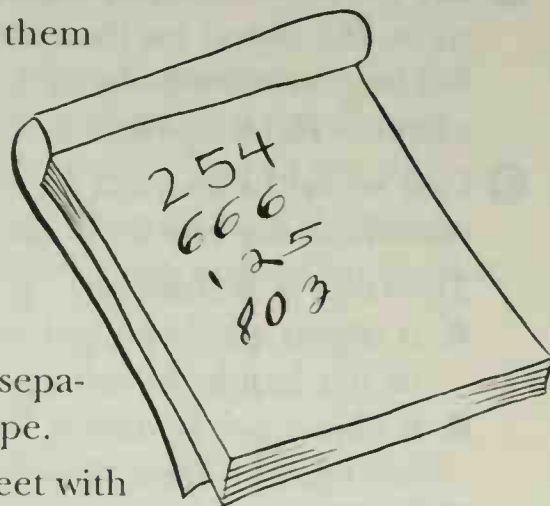 them
254
666
125
803
sepa-
pe.
eet with